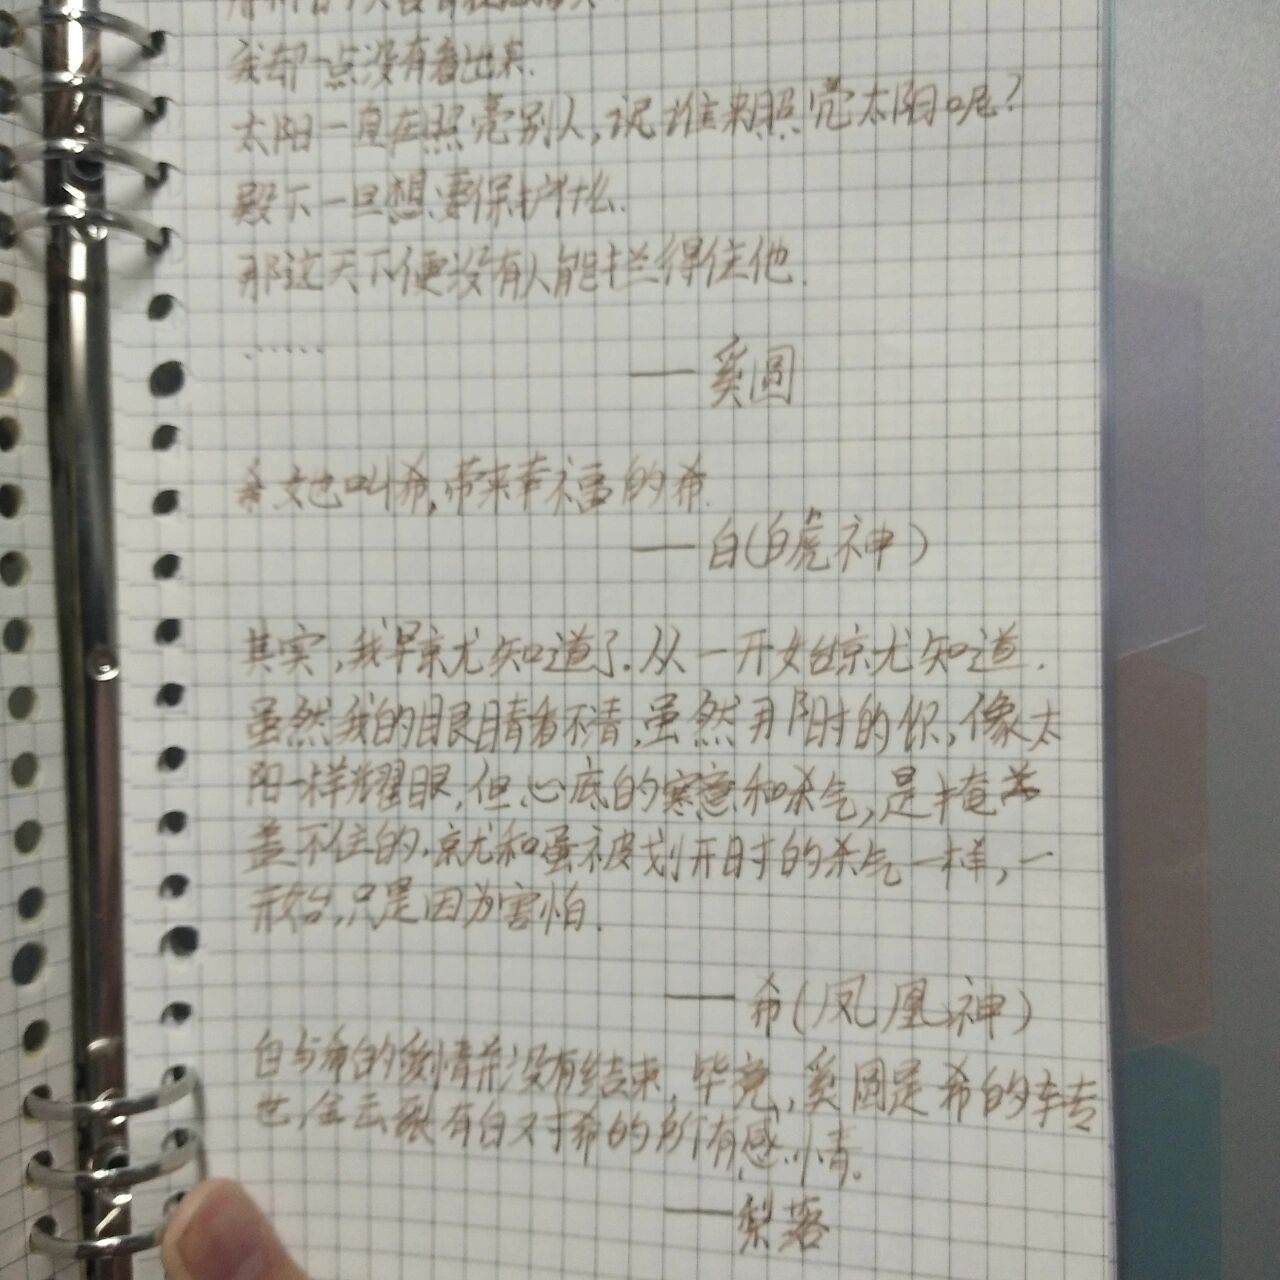 我却一点没有看出来.
太阳一直在照亮别人,说谁来照亮太阳呢?
殿下一旦想要保护什么.
那这天下便没有人能拦得住他.
……
——奚圆
她叫希,带来幸福的希.
——白(白虎神)
其实,我早就知道了.从一开始就知道.
虽然我的眼睛看不清,虽然那时的你,像太
阳一样耀眼,但心底的寒意和杀气,是掩
盖不住的.就和蛋被划开时的杀气一样,一
开始,只是因为害怕.
——希(凤凰神)
白与希的爱情并没有结束,毕竟,奚圆是希的转
世,金云 有白对于希的所有感情.
——梨落